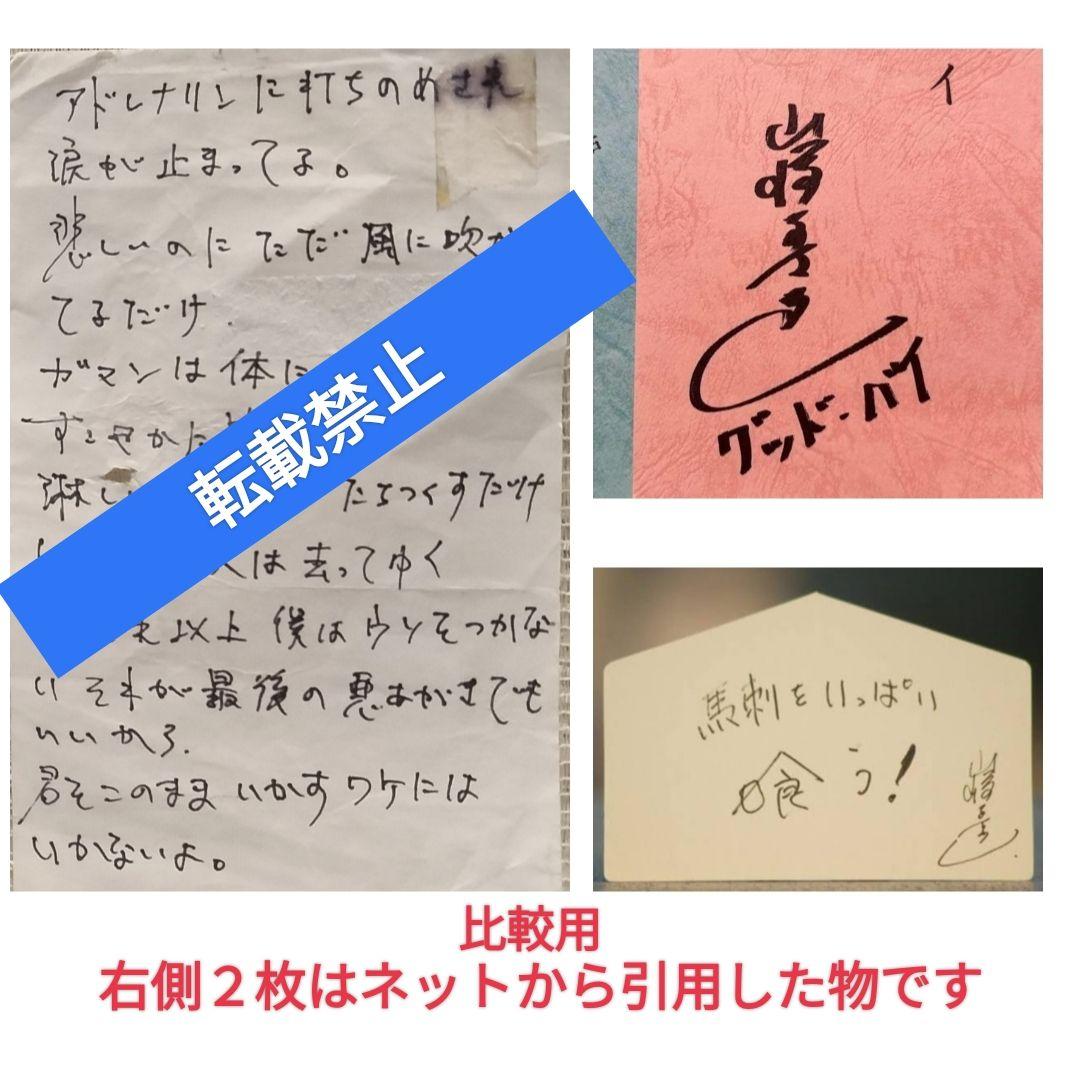 アドレナリンに打ちのめされ
涙が止まってる。
悲しいのにただ風に吹か
てるだけ.
ガマンは体に
すこやかた
淋し
たちつくすだけ
人は去ってゆく
以上 僕はウソをつかな
い それが最後の悪あがきでも
いいから.
君をこのまま いかすワケには
いかないよ。
転載禁止
イ
グッド・バイ
馬刺をいっぱい
喰う!
比較用
右側2枚はネットから引用した物です